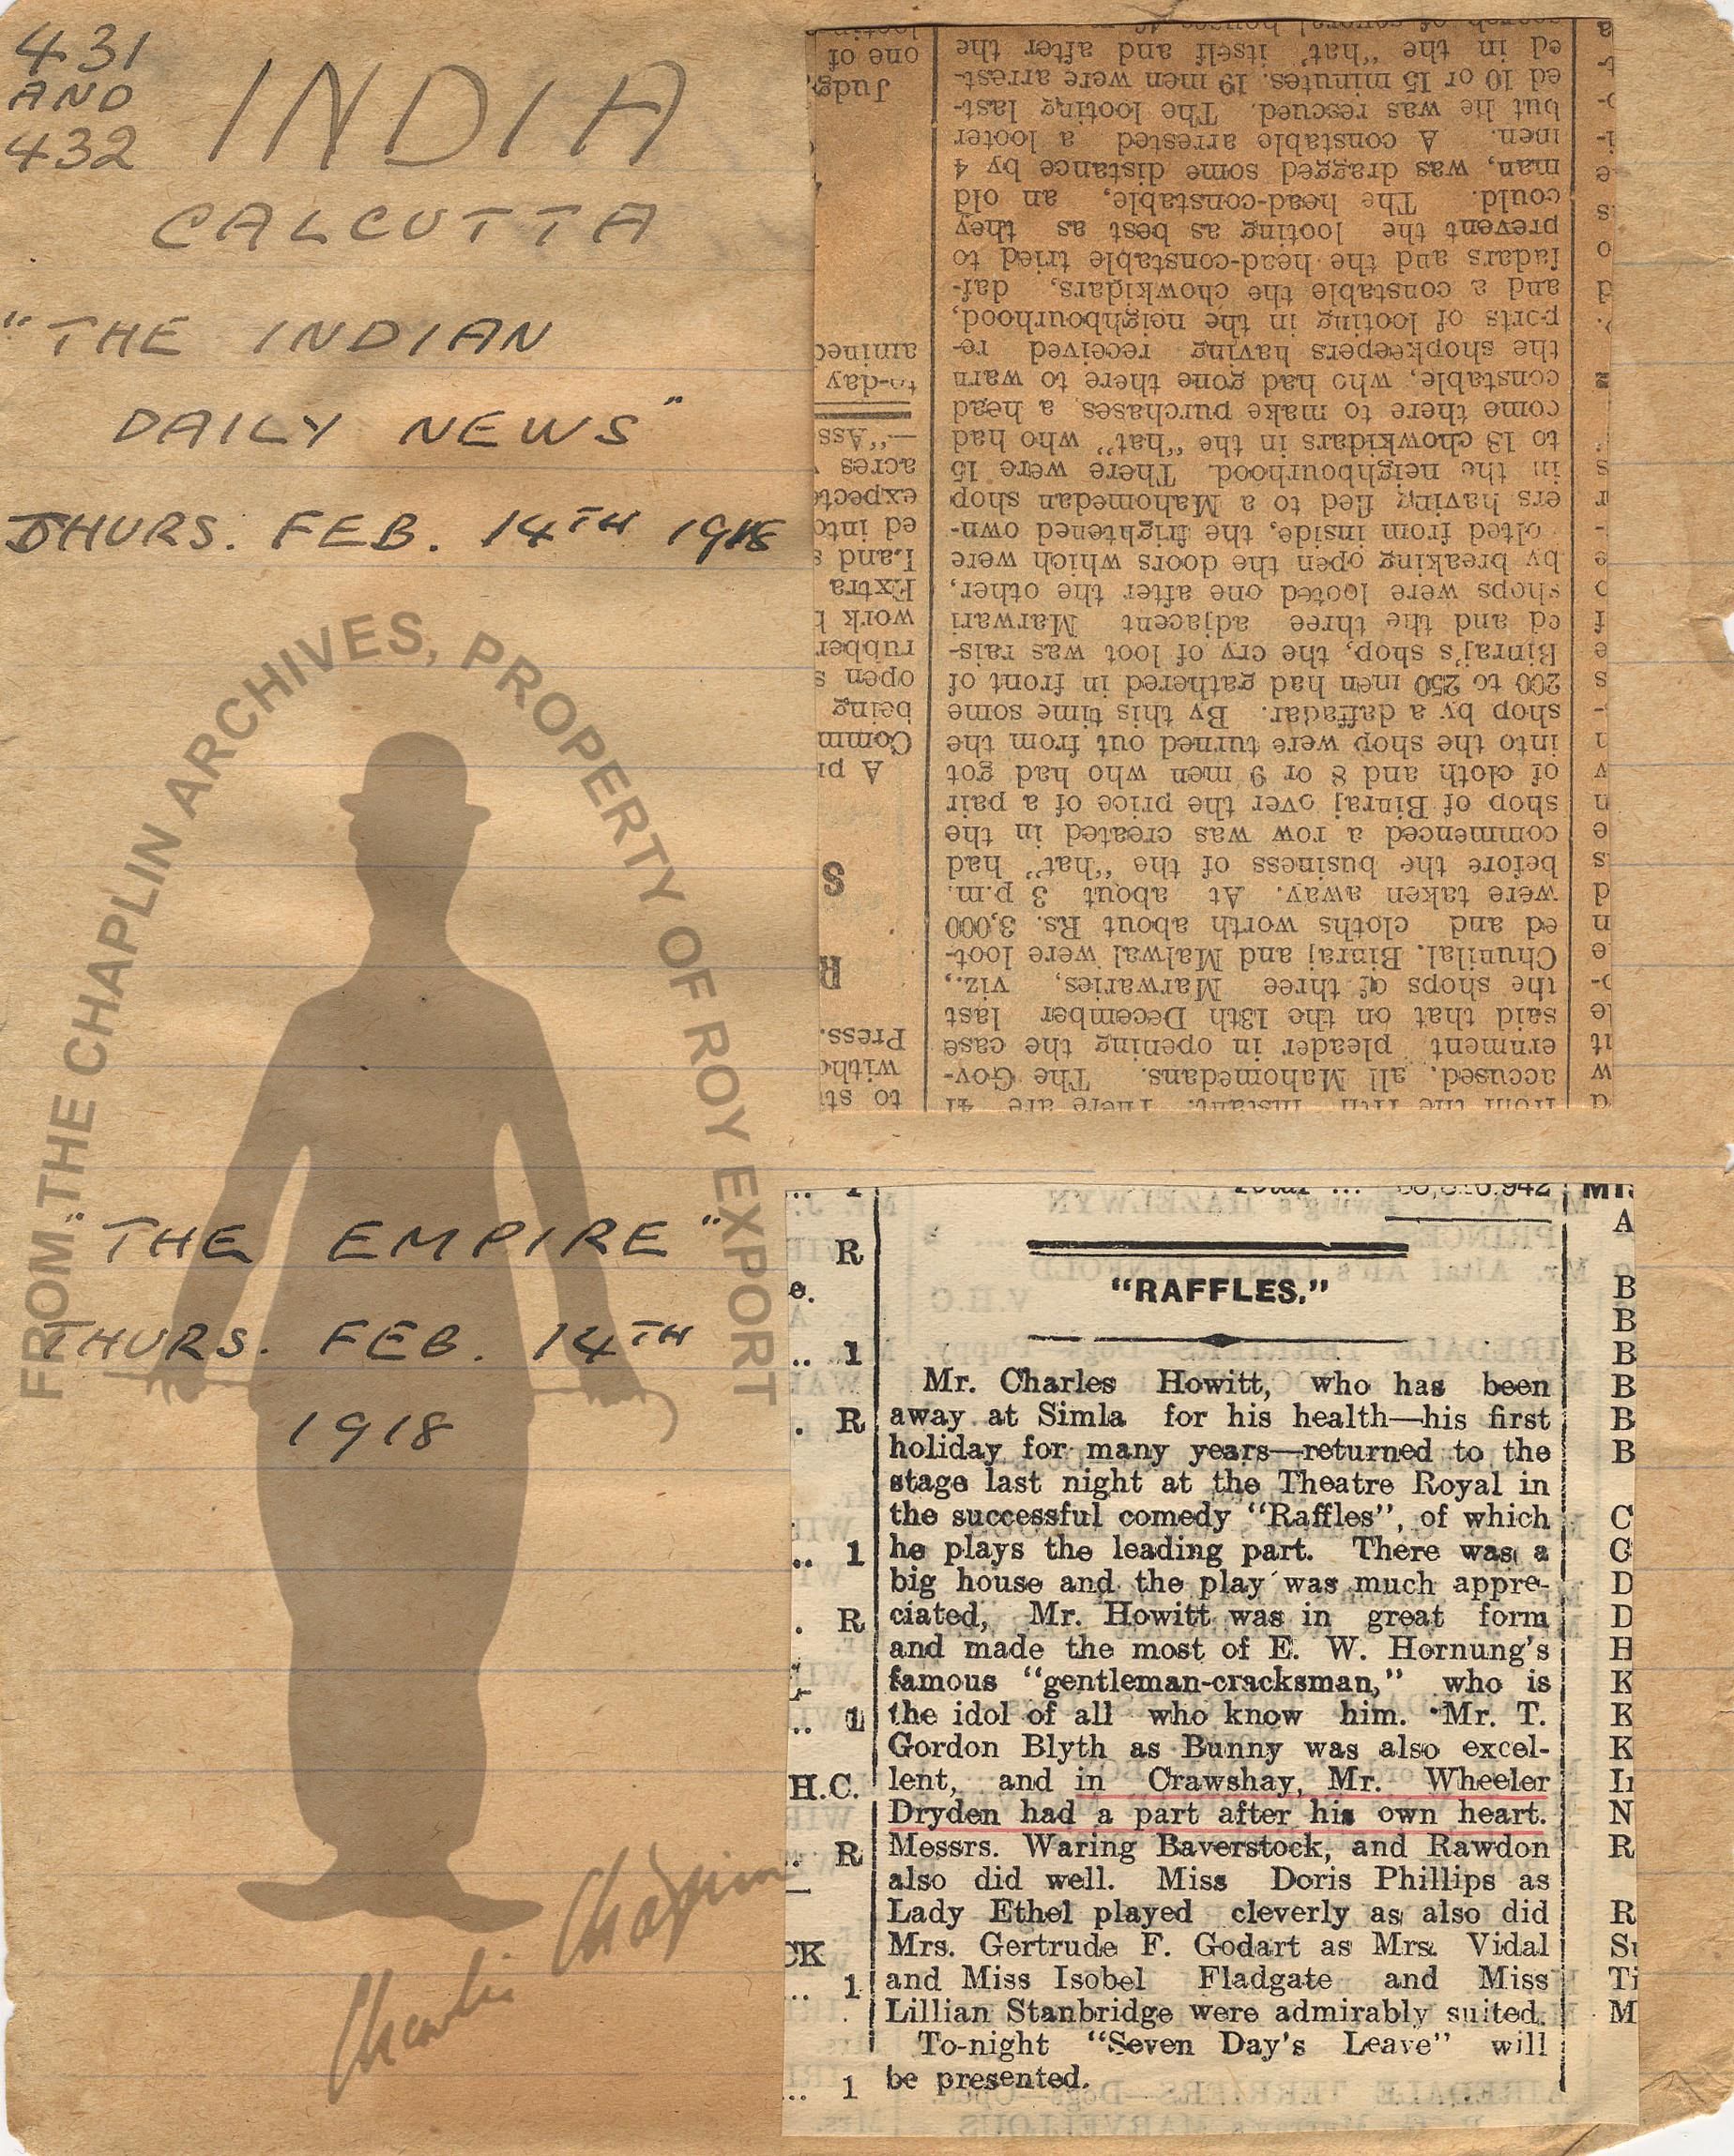 431
AND
432
INDIA
CALCUTTA
"THE INDIAN
DAILY NEWS"
THURS. FEB. 14TH 1918
from the 11th instant. There are 41
accused, all Mahomedans. The Gov-
ernment pleader in opening the case
said that on the 13th December last
the shops of three Marwaries, viz.,
Chunilal, Binraj and Malwaj were loot-
ed and cloths worth about Rs. 3,000
were taken away. At about 3 p.m.
before the business of the "hat" had
commenced a row was created in the
shop of Binraj over the price of a pair
of cloth and 8 or 9 men who had got
into the shop were turned out from the
shop by a daffadar. By this time some
200 to 250 men had gathered in front of
Binraj's shop, the cry of loot was rais-
ed and the three adjacent Marwari
shops were looted one after the other,
by breaking open the doors which were
olted from inside, the frightened own-
ers having fled to a Mahomedan shop
in the neighbourhood. There were 15
to 18 chowkidars in the "hat" who had
come there to make purchases, a head
constable, who had gone there to warn
the shopkeepers having received re-
ports of looting in the neighbourhood,
and a constable the chowkidars, daf-
fadars and the head-constable tried to
prevent the looting as best as they
could. The head-constable, an old
man, was dragged some distance by 4
men. A constable arrested a looter
but he was rescued. The looting last-
ed 10 or 15 minutes. 19 men were arrest-
ed in the "hat" itself and after the
to st
witho
Press.
R
S
A pr
Comm
being
open s
rubber
work
Extra
Land s
ed into
expecte
acres
—"Ass
to-day
amined
Judg
one of
"THE EMPIRE"
THURS. FEB. 14TH
1918
"RAFFLES."
Mr. Charles Howitt, who has been
away at Simla for his health—his first
holiday for many years—returned to the
stage last night at the Theatre Royal in
the successful comedy "Raffles", of which
he plays the leading part. There was a
big house and the play was much appre-
ciated, Mr. Howitt was in great form
and made the most of E. W. Hornung's
famous "gentleman-cracksman," who is
the idol of all who know him. Mr. T.
Gordon Blyth as Bunny was also excel-
lent, and in Crawshay, Mr. Wheeler
Dryden had a part after his own heart.
Messrs. Waring Baverstock, and Rawdon
also did well. Miss Doris Phillips as
Lady Ethel played cleverly as also did
Mrs. Gertrude F. Godart as Mrs. Vidal
and Miss Isobel Fladgate and Miss
Lillian Stanbridge were admirably suited.
To-night "Seven Day's Leave" will
be presented.
FROM THE CHAPLIN ARCHIVES, PROPERTY OF ROY EXPORT
Charlie Chaplin